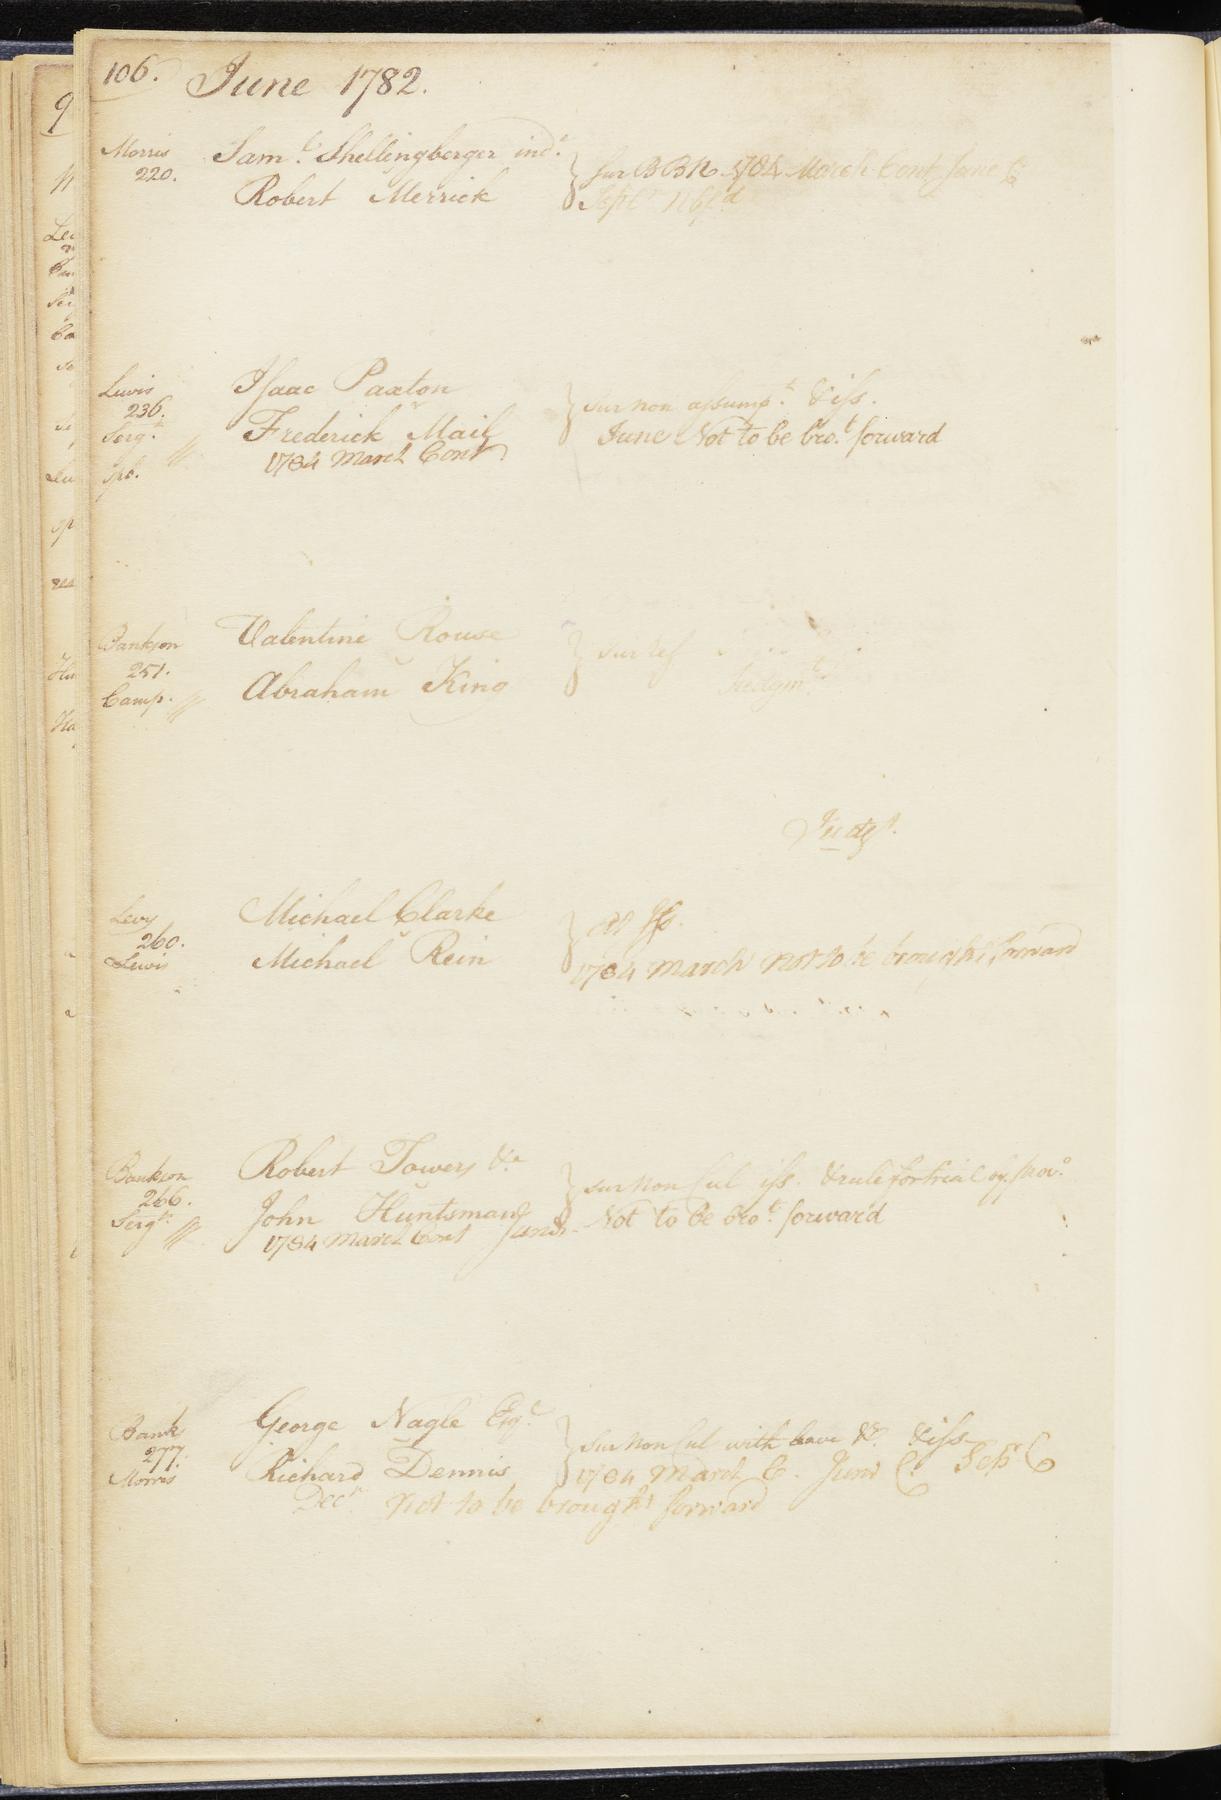 106. June 1782.
Morris Sam.l Shellingberger ind.e
220. } Sur BBR 1784 March Cont June C
Robert Merrick Sept.
Lewis Isaac Paxton
236. v } Sur non assump.t & iss.
Serg.t Frederick Mail June Not to be bro.t forward
1784 March Cont
Spd.
Bankson Valentine Rouse
251. v } Sur ref
Camp. Abraham King
Levy Michael Clarke
260. v }
Lewis Michael Rein 1784 March not to be brought forward
Bankson Robert Towers &a
266. v } Sur Non Cul iss. & rule for trial
Serg.t John Huntsman Not to be bro.t forward
1784 March Cont June
Bank George Nagle Esq.r
277. v } Sur Non Cul with leave &c. & iss
Morris Richard Dennis 1784 March C. June C. Sept C
Dec.r not to be brought forward